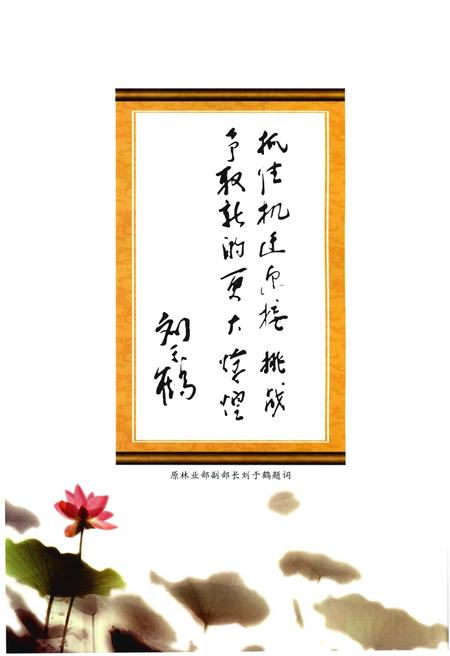 抓住机遇迎接挑战
争取新的更大辉煌
刘于鹤
原林业部副部长刘于鹤题词